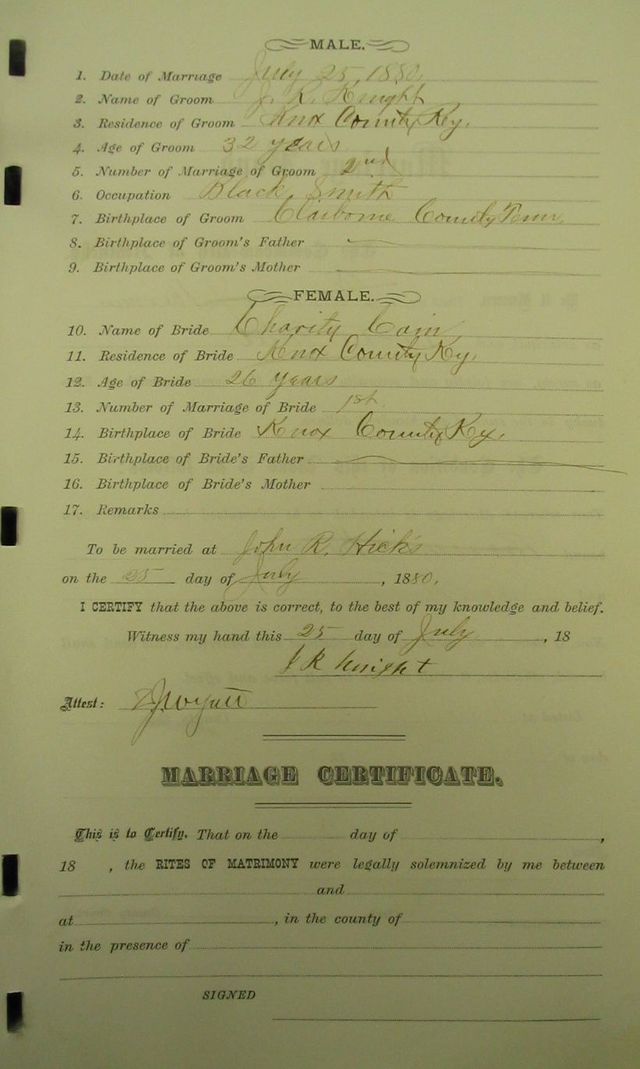 MALE.
1. Date of Marriage July 25, 1880.
2. Name of Groom J. R. Knight
3. Residence of Groom Knox County Ky.
4. Age of Groom 32 years
5. Number of Marriage of Groom 2nd
6. Occupation Black Smith
7. Birthplace of Groom Claiborne County Tenn
8. Birthplace of Groom's Father
9. Birthplace of Groom's Mother
FEMALE.
10. Name of Bride Charity Cain
11. Residence of Bride Knox County Ky
12. Age of Bride 26 years
13. Number of Marriage of Bride 1st
14. Birthplace of Bride Knox County Ky.
15. Birthplace of Bride's Father
16. Birthplace of Bride's Mother
17. Remarks
To be married at John R. Hicks
on the 25 day of July, 1880.
I CERTIFY that the above is correct, to the best of my knowledge and belief.
Witness my hand this 25 day of July, 18
J R Knight
Attest: Wyatt
MARRIAGE CERTIFICATE.
This is to Certify. That on the day of ,
18 , the RITES OF MATRIMONY were legally solemnized by me between
and
at , in the county of
in the presence of
SIGNED